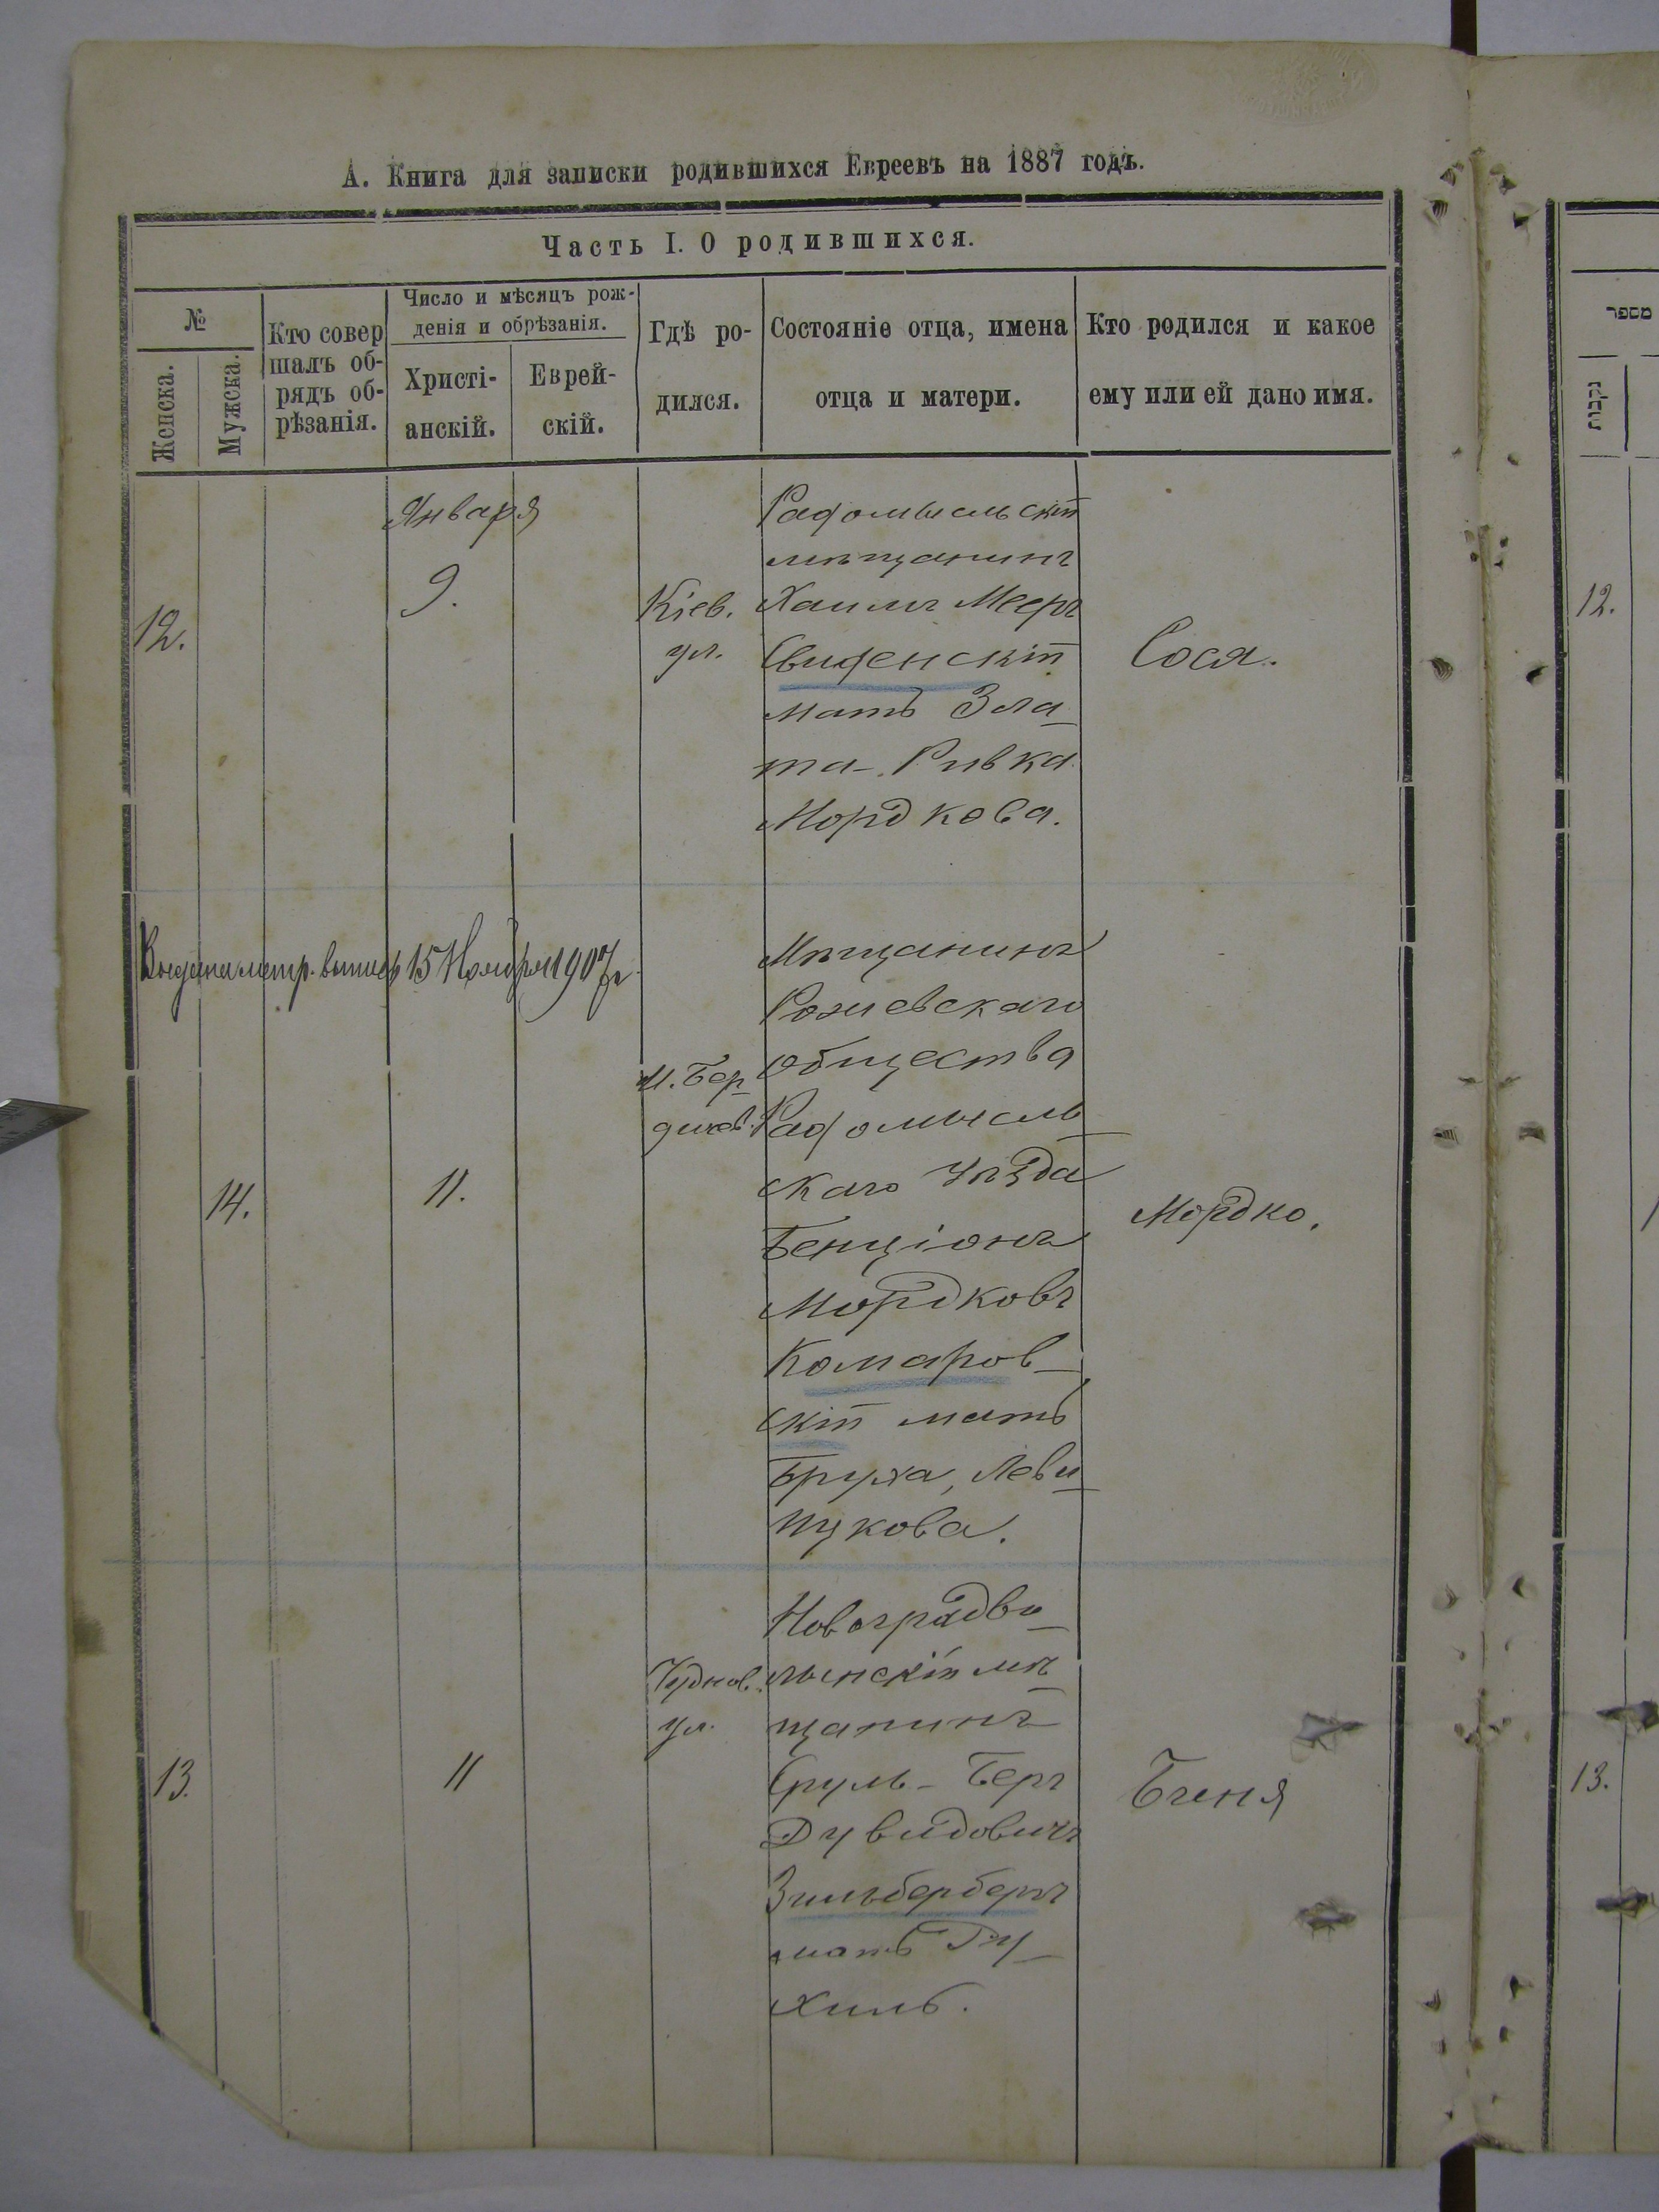 А. Книга для записки родившихся Евреевъ на 1887 годъ.
Часть I. О родившихся.
№
Женска.
Мужска.
Кто совер
шалъ об-
рядъ об-
рѣзанія.
Число и мѣсяцъ рож-
денія и обрѣзанія.
Христі-
анскій.
Еврей-
скій.
Гдѣ ро-
дился.
Состояніе отца, имена
отца и матери.
Кто родился и какое
ему или ей дано имя.
מספר
נקבות
12.
Января
9.
Кіев.
ул.
Радомысльскій
мѣщанинъ
Хаимъ Мееръ
Свиденскій
мать Зла-
та-Ривка
Мордкова.
Сося.
12.
Выдана метр. выпись 15 Ноября 1907 г
14.
11.
М. Бер-
дичев.
Мѣщанинъ
Рожевскаго
общества
Радомысль-
скаго уѣзда
Бенціонъ
Мордковъ
Комаров-
скій мать
Бруха, Леви-
щукова.
Мордко.
13.
11
Чуднов.
ул.
Новоградво-
лынскій мѣ-
щанинъ
Сруль-Беръ
Дувидовичъ
Зильбербергъ
мать Ру-
хиль.
Бгеня
13.